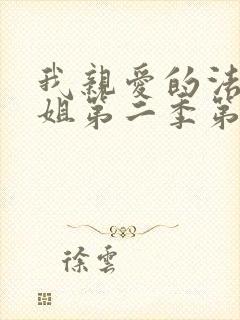 我親愛的洁
姐第二季第
徐雲